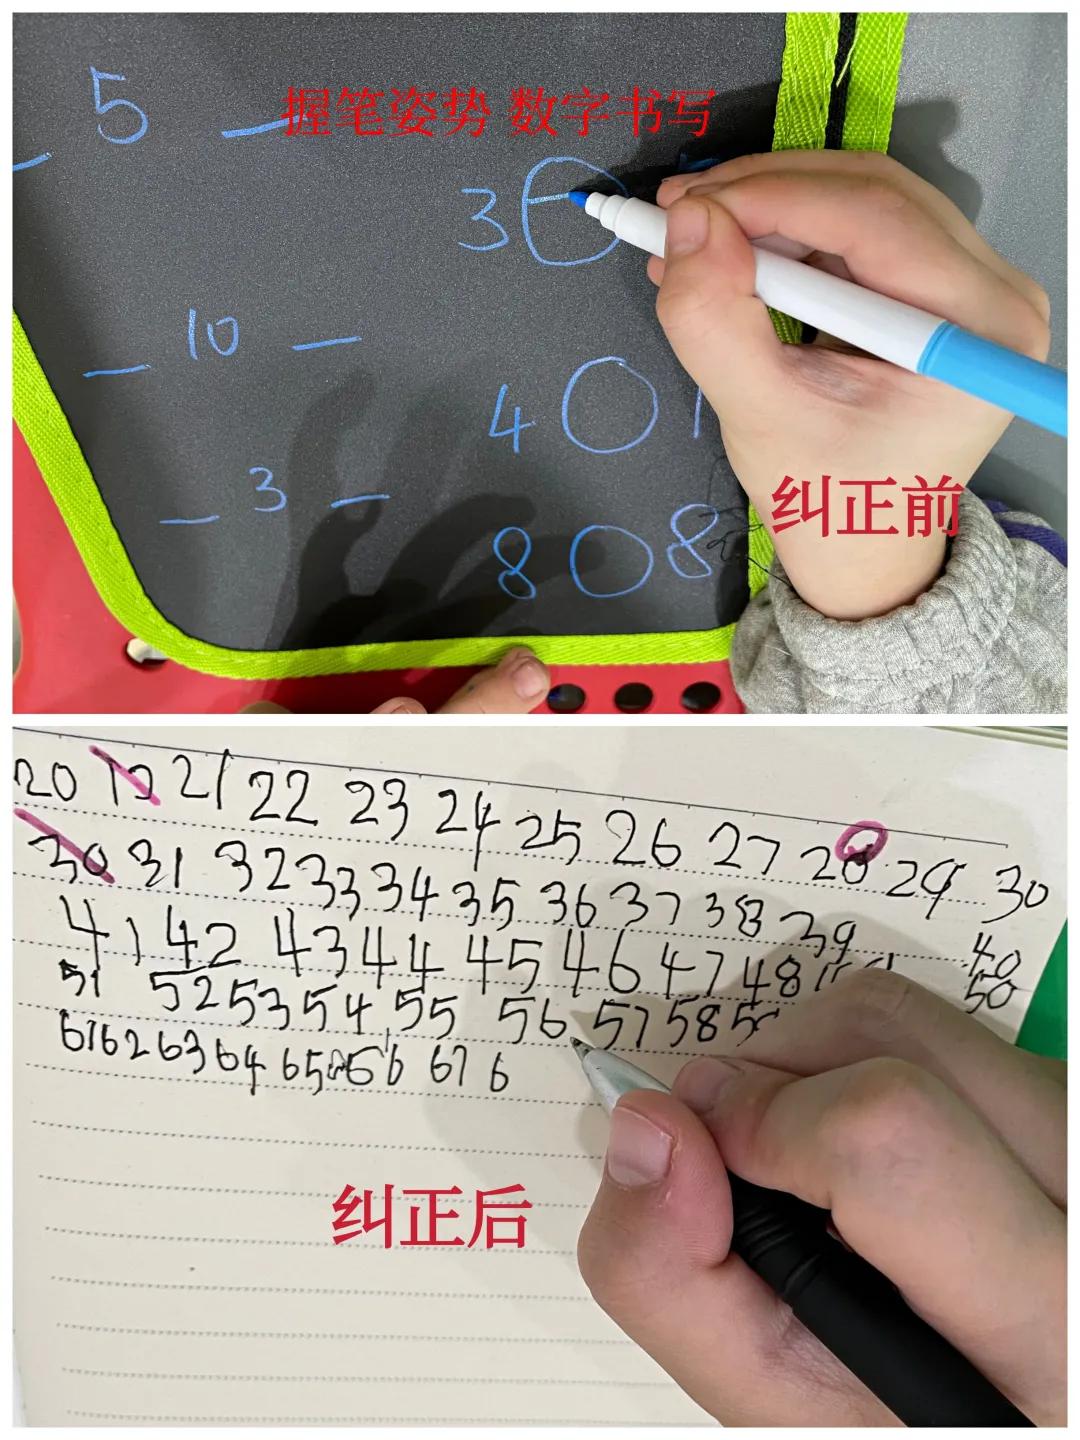 握笔姿势 数字书写
5 —
3
— 10 —
4 O 1
— 3 —
8 O 8
纠正前
20 12 21 22 23 24 25 26 27 28 29 30
30 31 32 33 34 35 36 37 38 39 40
41 42 43 44 45 46 47 48 50
51 52 53 54 55 56 57 58
61 62 63 64 65 66 67 6
纠正后